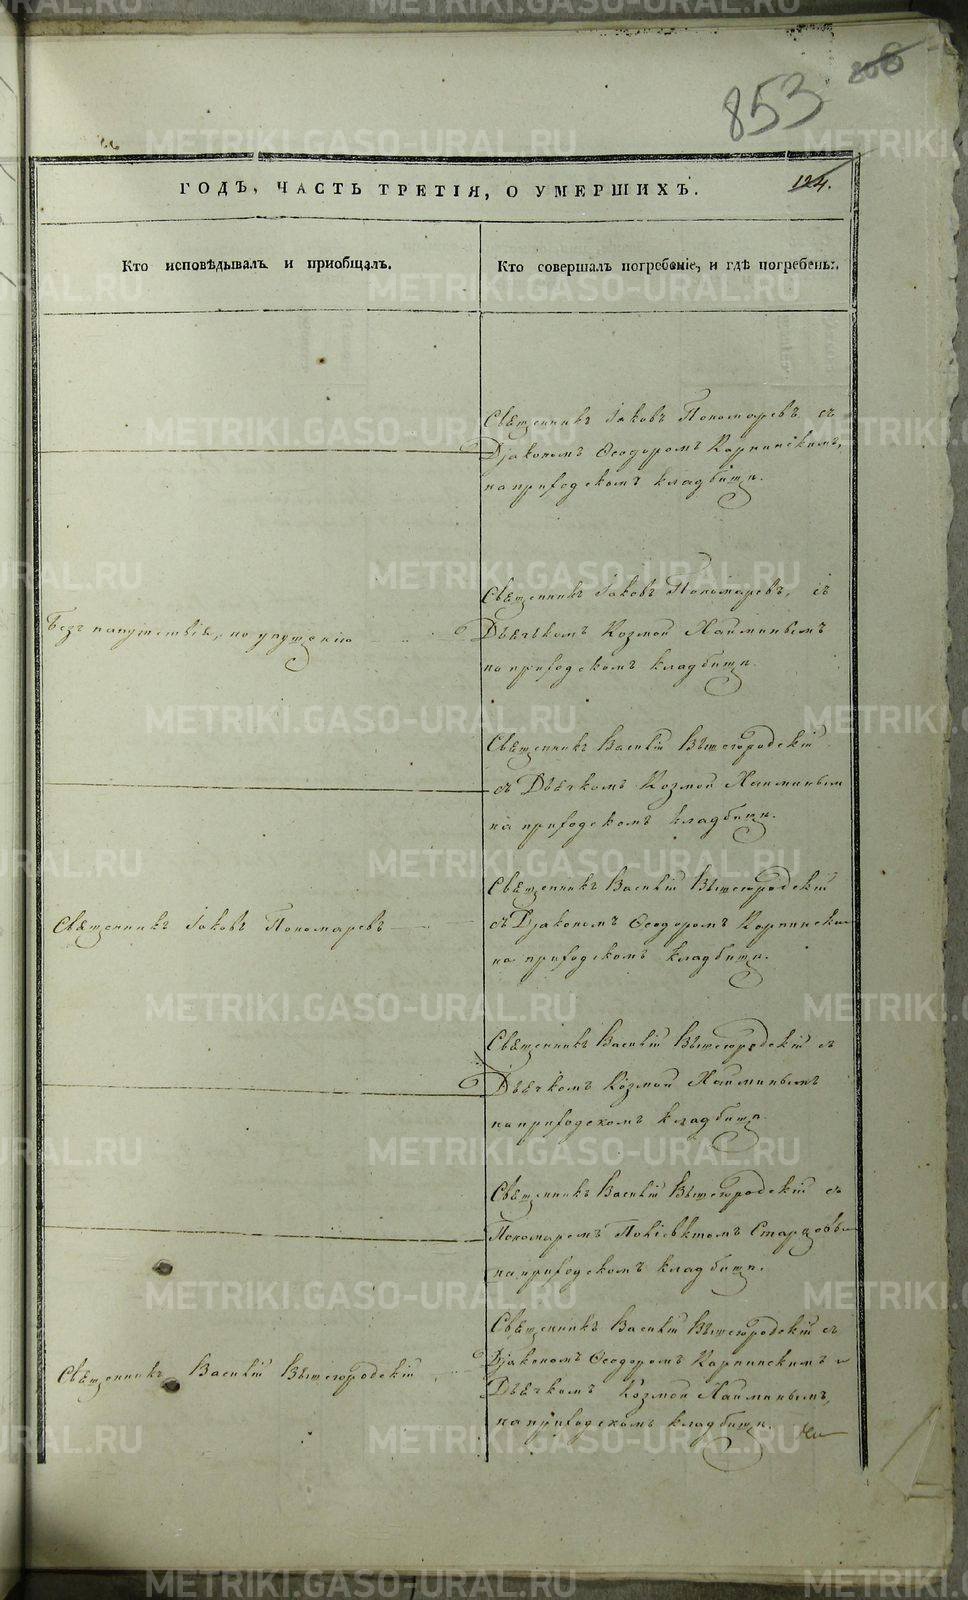 853
124.
ГОДЪ, ЧАСТЬ ТРЕТІЯ, О УМЕРШИХЪ.
Кто исповѣдывалъ и приобщалъ.
Кто совершалъ погребеніе, и гдѣ погребены.
Священникъ Іаковъ Пономаревъ съ
Діакономъ Ѳеодоромъ Карпинскимъ,
на приходскомъ кладбищѣ.
Безъ напутствія, по упущенію
Священникъ Іаковъ Пономаревъ, съ
Дьячкомъ Козмой Хайминымъ
на приходскомъ кладбищѣ.
Священникъ Василій Вышегородскій
съ Дьячкомъ Козмой Хайминым
на приходскомъ кладбищѣ.
Священникъ Іаковъ Пономаревъ
Священникъ Василій Вышегородскій
съ Діакономъ Ѳеодоромъ Карпинским
на приходскомъ кладбищѣ.
Священникъ Василій Вышегородскій съ
Дьячкомъ Козмой Хайминымъ
на приходскомъ кладбищѣ.
Священникъ Василій Вышегородскій съ
Пономаремъ Старцовым
на приходскомъ кладбищѣ.
Священникъ Василій Вышегородскій
Священникъ Василій Вышегородскій съ
Діакономъ Ѳеодоромъ Карпинскимъ и
Дьячкомъ Козмой Хайминымъ,
на приходскомъ кладбищѣ.
METRIKI.GASO-URAL.RU